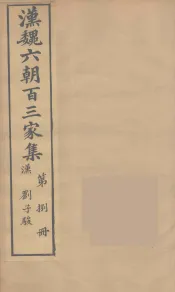 漢魏六朝百三家集
第捌冊
漢 劉子駿